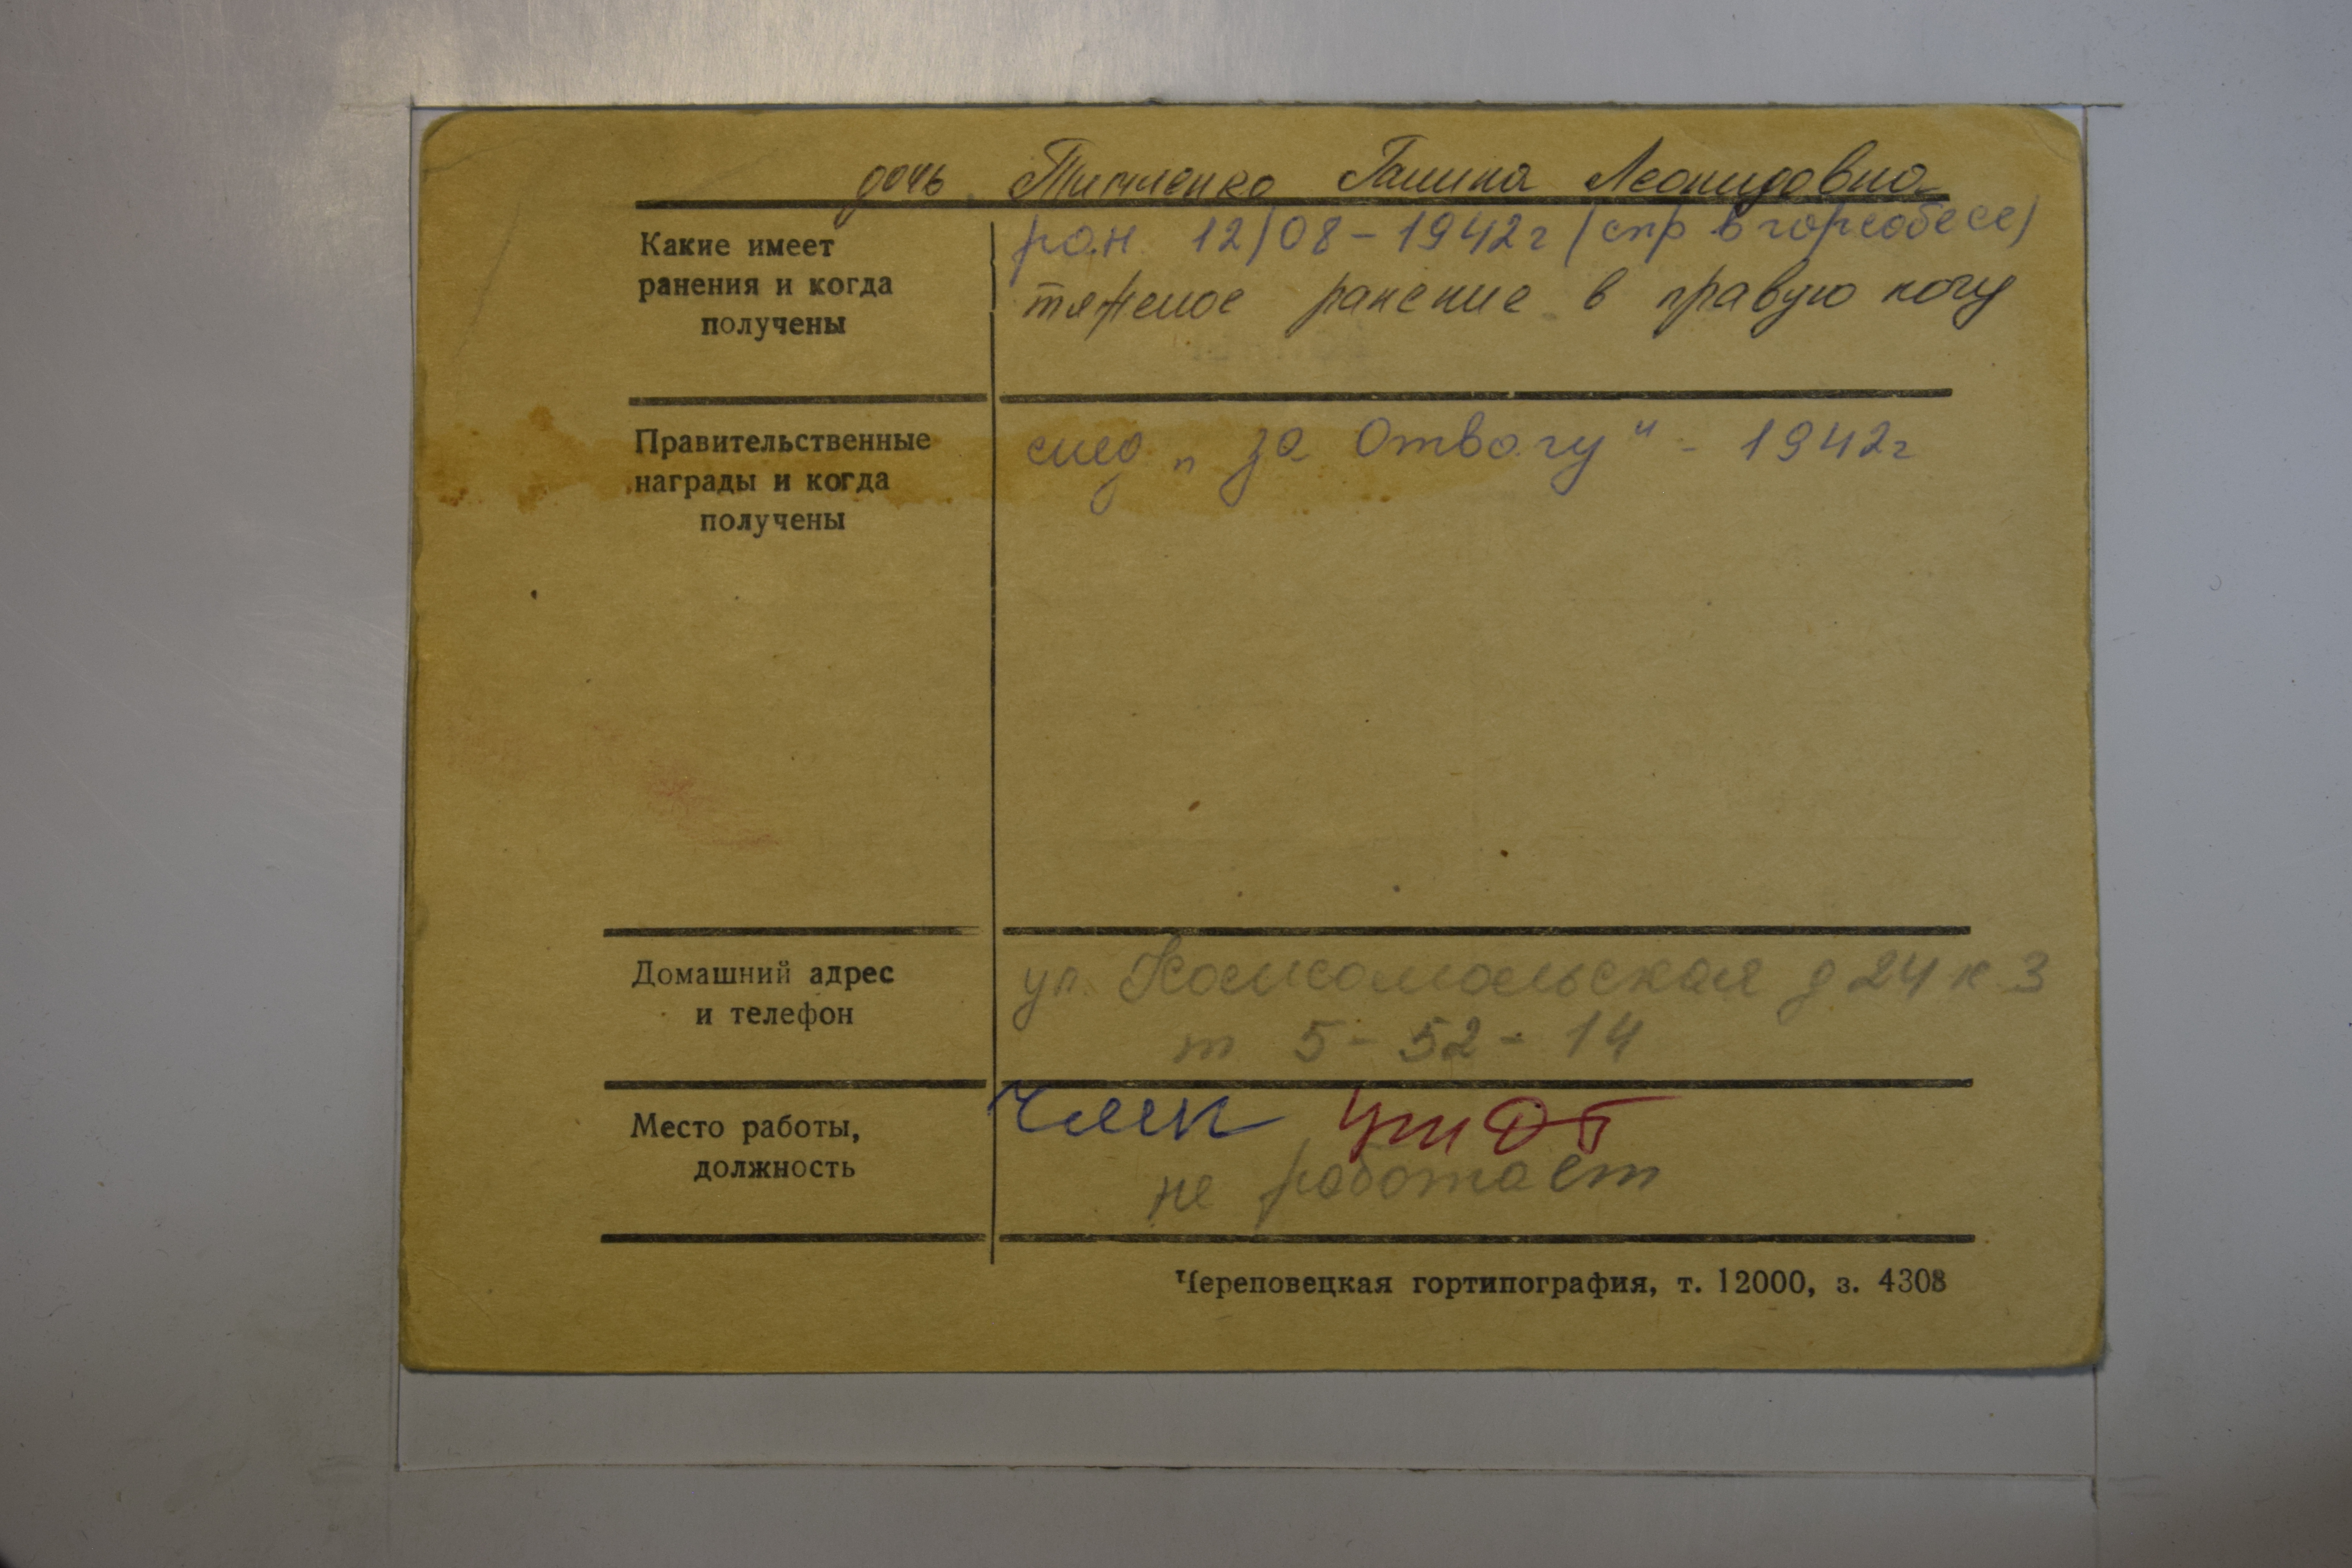 дочь Тимченко Галина Леонидовна
Какие имеет ранения и когда получены
ран 12/08-1942г (спр в горсобесе)
тяжелое ранение в правую ногу
Правительственные награды и когда получены
мед „За Отвагу" - 1942г
Домашний адрес и телефон
ул. Комсомольская д 24 к 3
т 5-52-14
Место работы, должность
не работает
Череповецкая гортипография, т. 12000, з. 4308